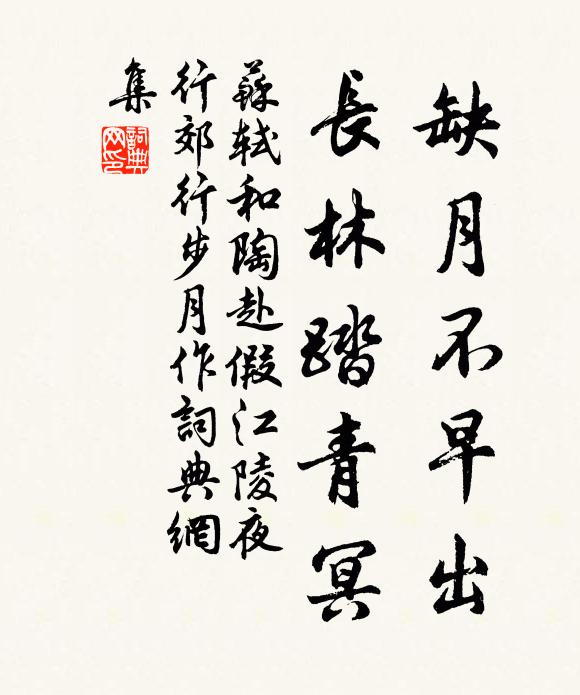 缺月不早出
長林踏青冥
蘇軾和陶赴假江陵夜
行郊行步月作詞典網
集
詞典
网印